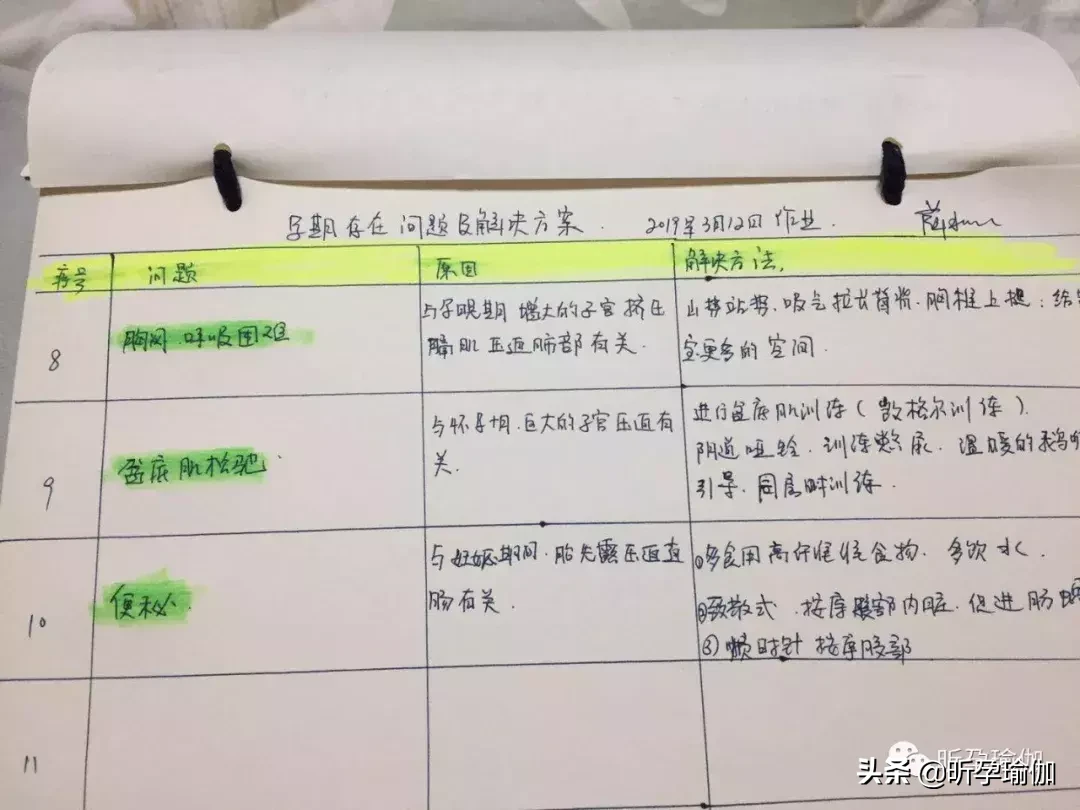 孕期存在问题及解决方案. 2019年3月12日 作业.
序号 问题 原因 解决方法.
8 胸闷.呼吸困难 与孕晚期 增大的子宫挤压膈肌 压迫肺部有关.
山式站势.吸气拉长脊柱.胸椎上提:给
宝更多的空间.
9 盆底肌松驰. 与怀孕期.巨大的子宫压迫有关.
进行盆底肌训练(凯格尔训练).
阴道哑铃.训练憋尿.温暖的
引导.同房时训练.
10 便秘. 与妊娠期间.胎先露压迫直肠有关.
①多食用高纤维性食物.多饮水.
②致敬式.按摩腹部内脏.促进肠
③顺时针按摩腹部
11
昕孕瑜伽
头条 @昕孕瑜伽